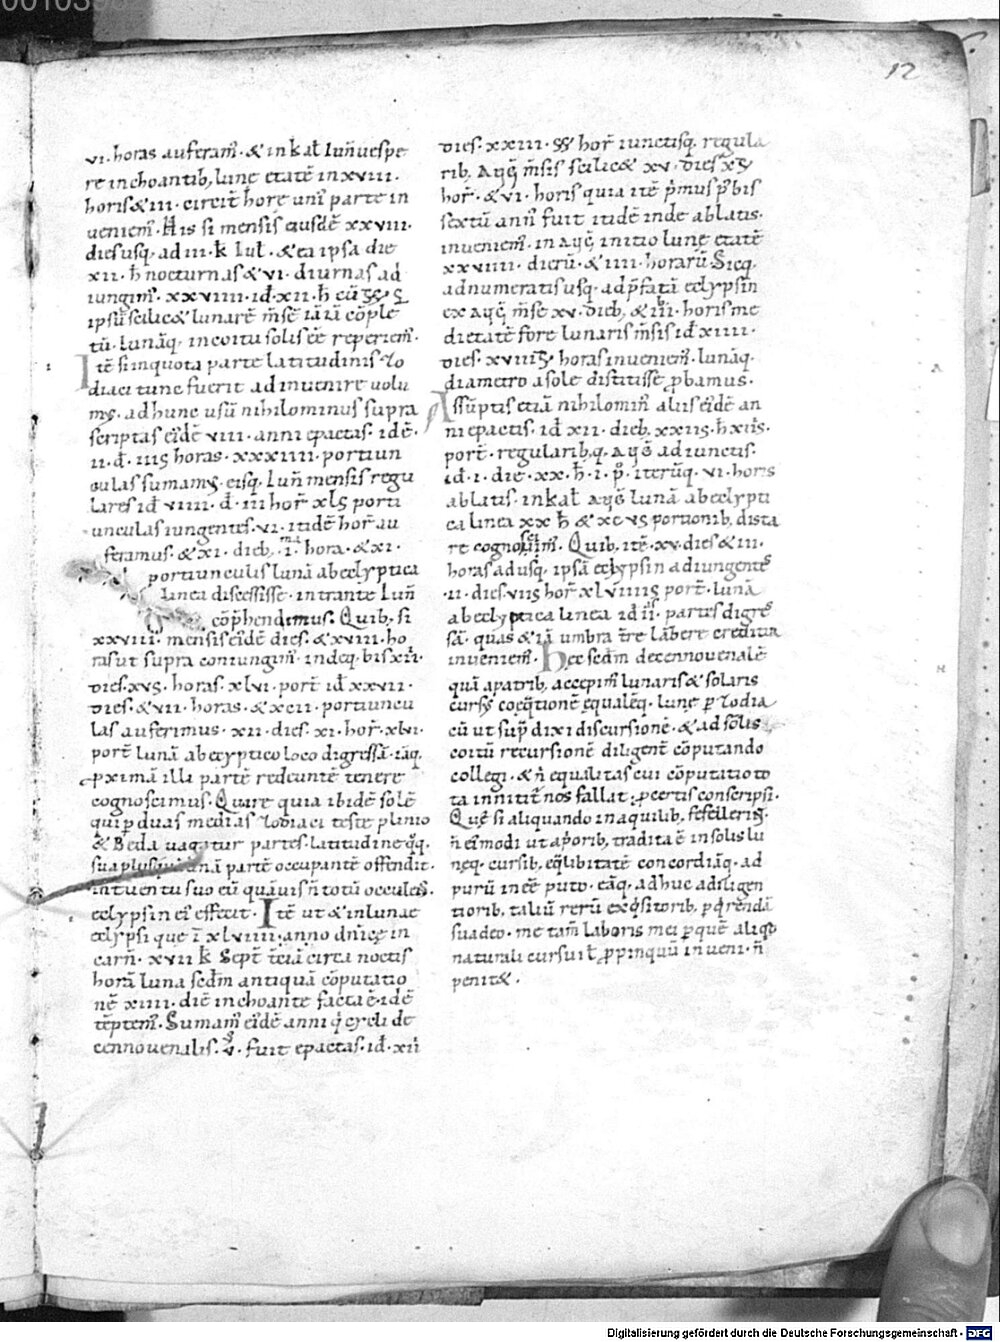 12
vi. horas auferam̄. & in kal̄ Iun̄ uespe
re inchoantib, lunę etatē in xviii.
horis & iii. circit̄ horę uni᾽ parte in
ueniem̄. His si mensis eiusdē xxviii.
dies usq, ad iii. k̄ Iul̄. & ea ipsa die
xii. h̄ nocturnas & vi. diurnas ad
iungim᾽. xxviiii. id̄. xii. h̄ cū
ipsū scilic& lunarē m̄sē iā iā cōple
tū. lunāq, in coitu solis ēē reperiem̄.
Itē si in quota parte latitudinis zo
diaci tunc fuerit ad inuenire uolu
mꝰ. ad hunc usū nihilominus supra
scriptas eidē viii. anni epactas. idē.
ii. d̄. iiiς horas. xxxiiii. portiun
culas sumamꝰ. eisq, Iun̄ mensis regu
lares id̄ viiii. d̄. iii hor̄ xlς porti
unculas iungentes. vi. itidē hor̄ au
feramus. & xi. dieb, i. hora. & xi.
portiunculis lunā ab eclyptica
linea discessisse. intrante Iun̄
cōp̄hendimus. Quib, si
xxviii. mensis eidē dies. & xviii. ho
ras ut supra coniungim᾽. indeq, bis xiii.
dies. xvς. horas. xlvi. port̄ id̄ xxvii.
dies. & vii. horas. & xcii. portiuncu
las auferimus. xii. dies. xi. hor̄. xlvi.
port̄ lunā ab ecyptico loco digressā. iāq,
pximā illi partē redeuntē tenere
cognoscimus. Quare quia ibidē solē
qui p duas medias zodiaci teste plinio
& Beda uagatur partes. latitudinē q̄q,
sua unā partē occupantē offendit.
intuentu suo eū quāuis n̄ totū occulēs.
eclypsin ei᾽ effecit. Itē ut & in lunae
eclypsi quę ī xlviiii. anno dn̄icę in
carn̄. xvii k̄ Sept̄ t̄cia circa noctis
horā luna sec̄dm antiquā cōputatio
nē xiiii. diē inchoante facta ē. idē
tēptem᾽. Sumam᾽ eidē anni q̄ cycli de
cennouenalis. v. fuit epactas. id̄. xii
dies. xxiii. hor̄ iunctisq, regula
rib, Auḡ m̄sis scilic& xv. dieb
hor̄. & vi. horis quia itē p̄mus p̄ bis
sextū ann᾽ fuit itidē inde ablatis.
inueniem᾽. in Auḡ initio lunę etatē
xxviiii. dierū. & iiii. horarū. Sicq,
adnumeratis usq, ad p̄fatā eclypsin
ex Auḡ m̄se xv. dieb, & iii. horis me
dietatē fore lunaris m̄sis id̄ xiiii.
dies. xviii horas inueniem᾽. lunāq,
diametro a sole distitisse pbamus.
Assūptis etiā nihilomin᾽ aliis eidē an
ni epactis. id̄ xii. dieb, xxiiς. h̄ xiiς.
port̄. regularib, q. Augꝰ adiunctis.
id̄. i. die. xx. h̄. i. p̄. iterūq, vi. horis
ablatis. in kal̄ Augꝰ lunā ab eclypti
ca linea xx h̄ & xcvς portionib, dista
re cognoscim᾽. Quib, itē xv. dies & iii.
horas ad usq, ipsā eclypsin adiungentes
ii. dies. viiς hor̄ xlviiiiς port̄. luna
ab eclyptica linea id̄ ii. partes digres
sā. quas & iā umbra t̄rę lābere creditur
inueniem᾽. Hęc sec̄dm decennouenalē
quā a patrib, accepim᾽ lunaris & solaris
cursꝰ coęq̄tionē equalēq, lunę p zodia
cū ut sup̄ dixi discursionē. & ad solis
coitū recursionē diligent̄ cōputando
collegi. & n̄ equalitas cui cōputatio to
ta innitit̄ nos fallat. p certis conscripsi.
Quę si aliquando inaquilib, fefelleris.
n̄ ei᾽modi ut a priorib, tradita ē in solis lu
nęq, cursib, eq̄libitatē concordiāq, ad
purū inēē puto. eāq, adhuc a diligen
tiorib, taliū rerū expositorib, pq̄rendā
suadeo. me tam̄ laboris mei pquē aliqd
naturali cursui ppinquū inueni. n̄
penit&.
Digitalisierung gefördert durch die Deutsche Forschungsgemeinschaft - DFG